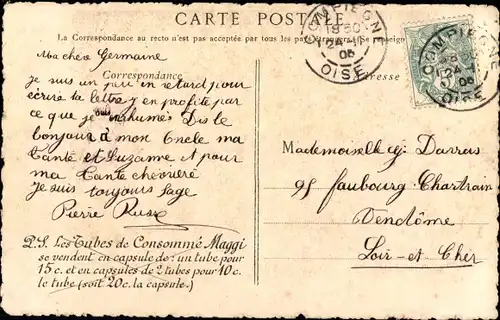 CARTE POSTALE
La Correspondance au recto n'est pas acceptée par tous les pays étrangers. (Se renseign
COMPIEGNE
OISE
COMPIEGNE
OISE
Correspondance
Adresse
Ma chère Germaine
Je suis un peu en retard pour
écrire ta lettre j'en profite par
ce que je suis Dis le
bonjour à mon Oncle ma
Tante et Suzanne et pour
ma Tante
Je suis toujours sage
Pierre
Mademoiselle
95 faubourg Chartrain
Vendôme
Loir-et-Cher
P.S. Les Tubes de Consommé Maggi
se vendent en capsule de: un tube pour
15 c. et en capsules de 2 tubes pour 10 c.
le tube (soit 20c. la capsule.)